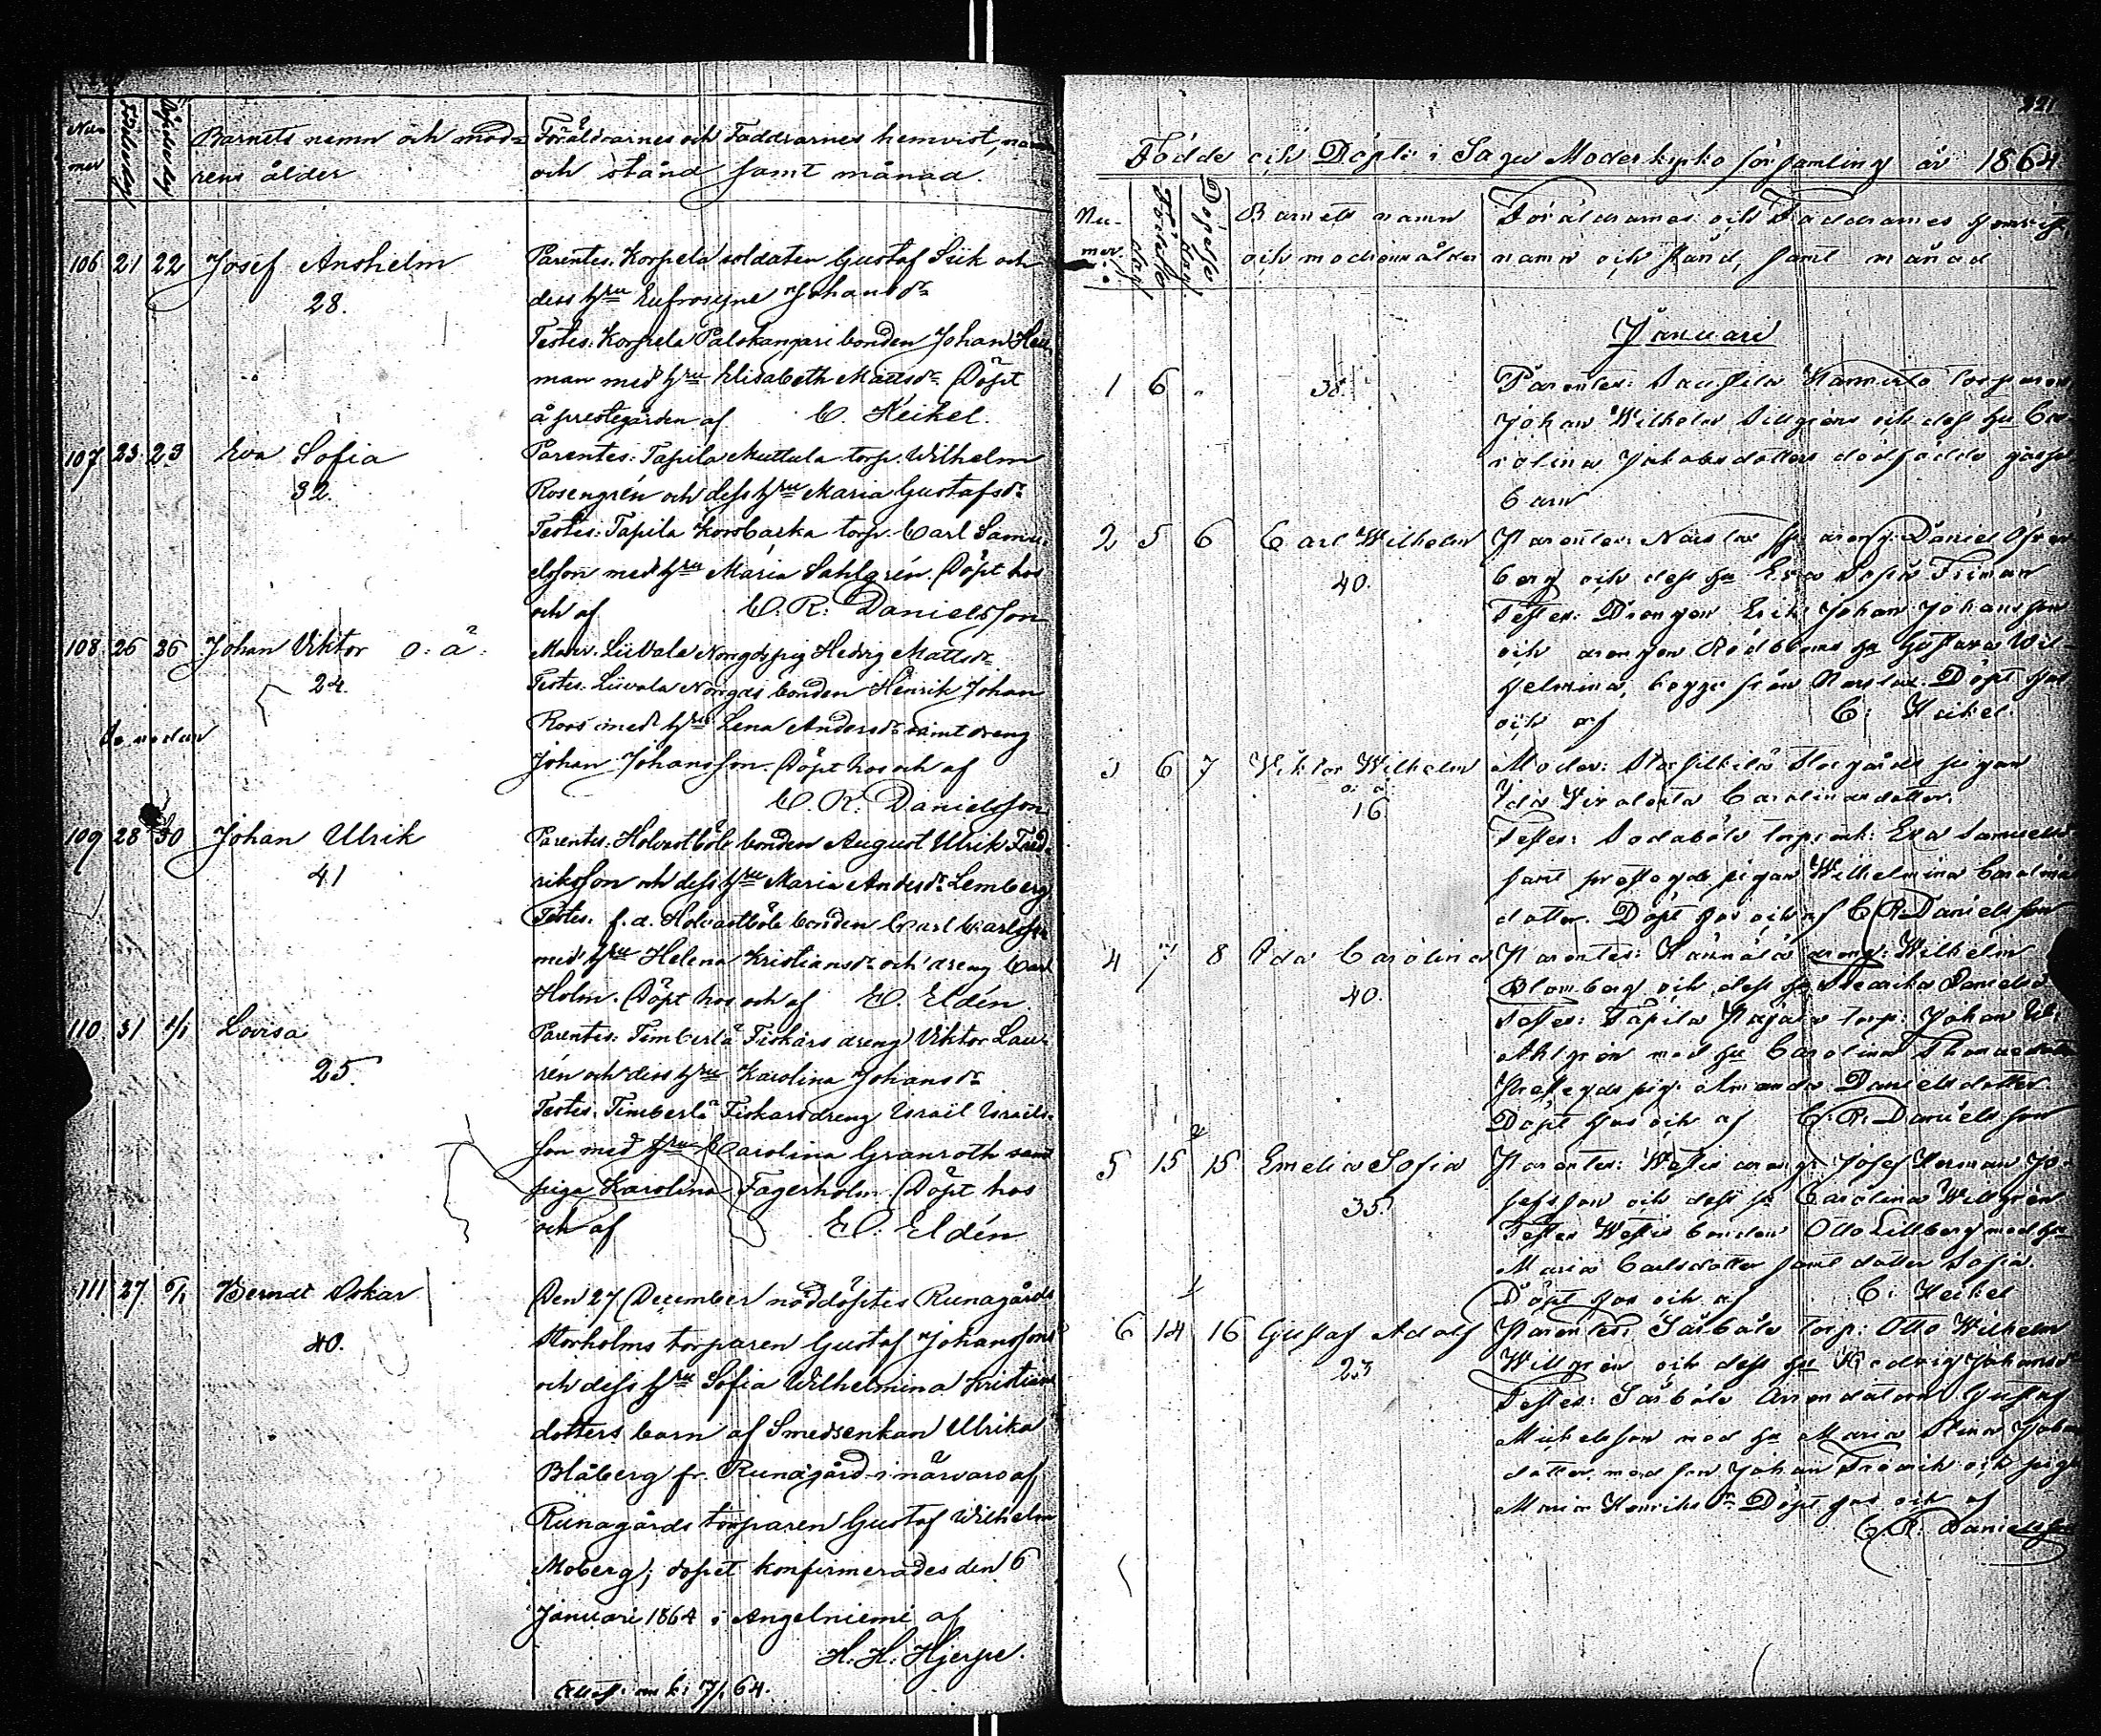 Nu-
mer
Födelsedag
Döpelsedag
Barnets namn och mod-
rens ålder
Föräldrarnes och Faddrarnes hemvist, namn
och stånd samt månad.
106 21 22 Josef Anshelm
28.
Parentes. Korpela soldaten Gustaf Siik och
dess hru Eufrosyne Johansdr
Testes: Korpela Palskanpari bonden Johan Hei
man med hru Elisabeth Mattsdr Döpt
å prestegården af C. Heikel.
107 23 23 Eva Sofia
32.
Parentes: Tapila Muttala torp. Wilhelm
Rosengrén och dess hru Maria Gustafsdr
Testes: Tapila Korsbacka torp. Carl Samu-
elsson med hru Maria Sahlgrén. Döpt hos
och af C. R. Danielsson
108 26 26 Johan Viktor o. ä.
24.
Mod. Liivala Norrgds pig Hedvig Mattsdr
Testes. Liivala Norrgds bonden Henrik Johan
Roos med hru Lena Andersdr samt dreng
Johan Johansson. Döpt hos och af
C. R. Danielsson
109 28 30 Johan Ulrik
41
Parentes: Holvastböle bonden August Ulrik Fred-
riksson och dess hru Maria Andersdr Lemberg
Testes. f.d. Holvastböle bonden Carl Carlsson
med hru Helena Kristiansdr och dreng Carl
Holm. Döpt hos och af C. Eldén
110 31 1/1 Lovisa
25.
Parentes: Timberlå Fiskars dreng Viktor Lau-
rén och dess hru Karolina Johansdr
Testes. Timberlå Fiskars dreng Israël Israëls-
son med hru Carolina Granroth samt
piga Karolina Fagerholm. Döpt hos
och af C. Eldén
111 27 6/1 Berndt Oskar
40.
Den 27 December nöddöptes Runagårds
Storholms torparen Gustaf Johanssons
och dess hru Sofia Wilhelmina Kristians
dotters barn af Smedsenkan Ulrika
Blåberg fr. Runagård i närvaro af
Runagårds torparen Gustaf Wilhelm
Moberg; dopet konfirmerades den 6
Januari 1864 i Angelniemi af
H. H. Hjerpe.
7/1 64.
221
Födde och Döpte i Sagu Moderkyrko församling år 1864
Nu-
mer.
Födelse
dag
Döpelse
dag
Barnets namn
och modrens ålder
Föräldrarnes och Faddrarnes hemvist
namn och stånd, samt månad
Januari
1 6 38.
Parentes: torparen
Johan Wilhelm Sillgréns och dess hu Ca-
rolina Jakobsdotters dödfödde gosse
barn
2 5 6 Carl Wilhelm
40.
Parentes: dreng: Daniel Öster
berg och dess hu Eva Sofia Friman
Testes: Drengen Erik Johan Johansson
och drengen Rödbloms hu Gustava Wil-
helmina, begge från Döpt hos
och af C: Heikel.
3 6 7 Viktor Wilhelm
o. ä.
16
Moder: Storgårds pigan
Ida Vivalenta Carolinasdotter.
Testes: Eva Samuelsdr
samt prestegds pigan Wilhelmina Carolina
dotter. Döpt hos och af C R Danielsson
4 7 8 Ida Carolina
40.
Parentes: dreng: Wilhelm
Blomberg och dess hu Fredrika Danielsdr
Testes: Tapila torp: Johan
Ahlgrén med hu Carolina
Prestegds pig: Amanda Danielsdotter
Döpt hos och af C. R. Danielsson
5 15 15 Emelia Sofia
35.
Parentes: dreng: Josef Herman Jo-
sefsson och dess hu Carolina Willgrén
Testes bonden Otto Lillberg med hu
Maria Carlsdotter samt dotter Sofia.
Döpt hos och af C: Heikel
6 14 16 Gustaf Adolf
23
Parentes: Särböle torp: Otto Wilhelm
Willgrén och dess hu Hedvig Johansdr
Testes: Särböle Arrendatorn Gustaf
Michelsson med hu Maria Stina Johans
dotter med son Johan Fredrik och piga
Maria Henriksdr Döpt hos och af
C R. Danielsson